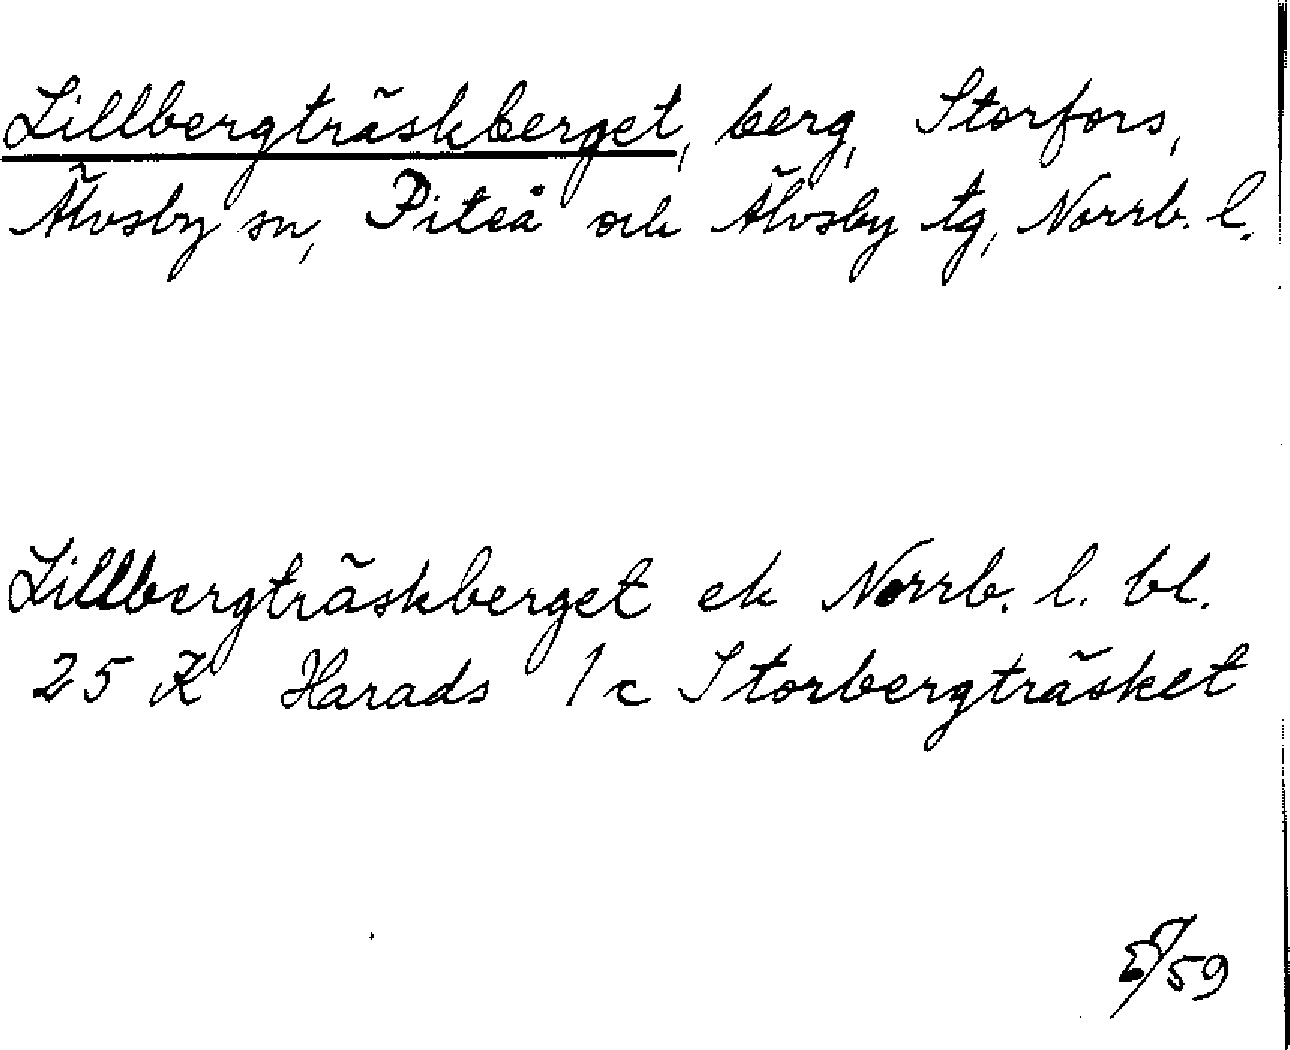 Lillbergträskberget, berg, Storfors,
Älvsby sn, Piteå och Älvsby tg, Norrb. l.
Lillbergträskberget ek Norrb. l. bl.
25 K Harads 1c Storbergträsket
/59